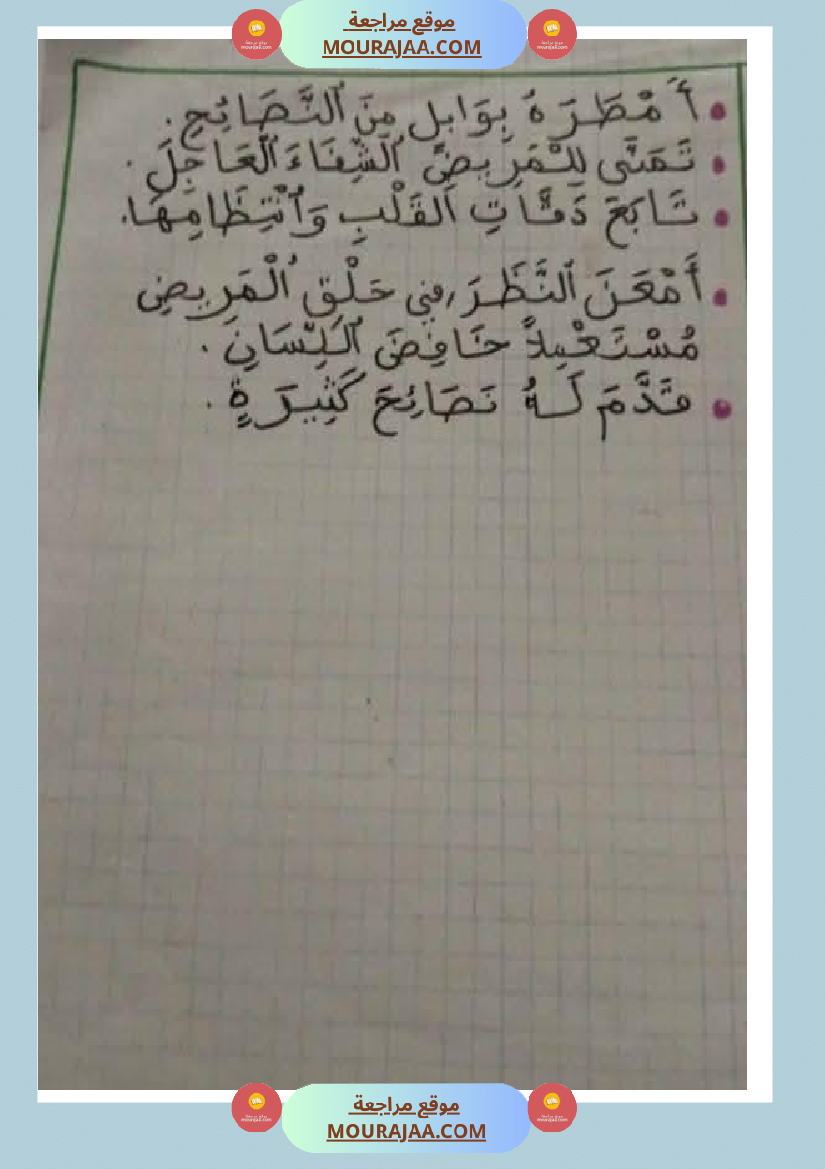 موقع مراجعة
MOURAJAA.COM
أَمْطَرَهُ بِوَابِلٍ مِنَ ٱلنَّصَائِحِ.
تَمَنَّى لِلْمَرِيضِ ٱلشِّفَاءَ ٱلْعَاجِلَ.
تَابَعَ دَقَّاتِ ٱلقَلْبِ وَٱنْتِظَامِهَا.
أَمْعَنَ ٱلنَّظَرَ فِي حَلْقِ ٱلْمَرِيضِ
مُسْتَعْمِلاً خَافِضَ ٱللِّسَانِ.
قَدَّمَ لَهُ نَصَائِحَ كَثِيرَةٍ.
موقع مراجعة
MOURAJAA.COM